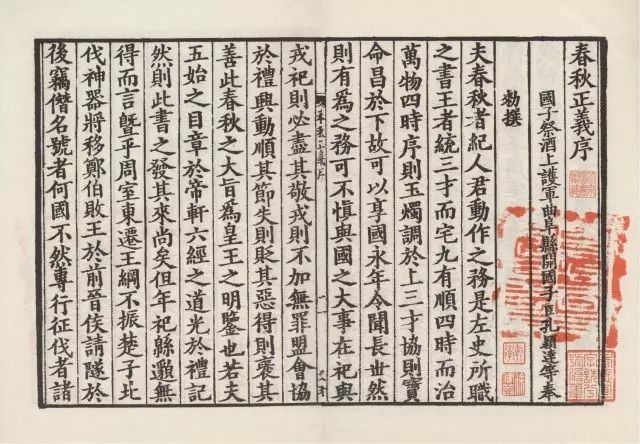 春秋正義序
國子祭酒上護軍曲阜縣開國子臣孔穎達等奉
勑撰
夫春秋者紀人君動作之務是左史所職
之書王者統三才而宅九有順四時而治
萬物四時序則玉燭調於上三才協則寶
命昌於下故可以享國永年令聞長世然
則有爲之務可不愼與國之大事在祀與
戎祀則必盡其敬戎則不加無罪盟會協
於禮興動順其節失則貶其惡得則襃其
善此春秋之大旨爲皇王之明鑒也若夫
五始之目章於帝軒六經之道光於禮記
然則此書之發其來尚矣但年祀緜邈無
得而言曁平周室東遷王綱不振楚子北
伐神器將移鄭伯敗王於前晉侯請隧於
後竊僭名號者何國不然專行征伐者諸